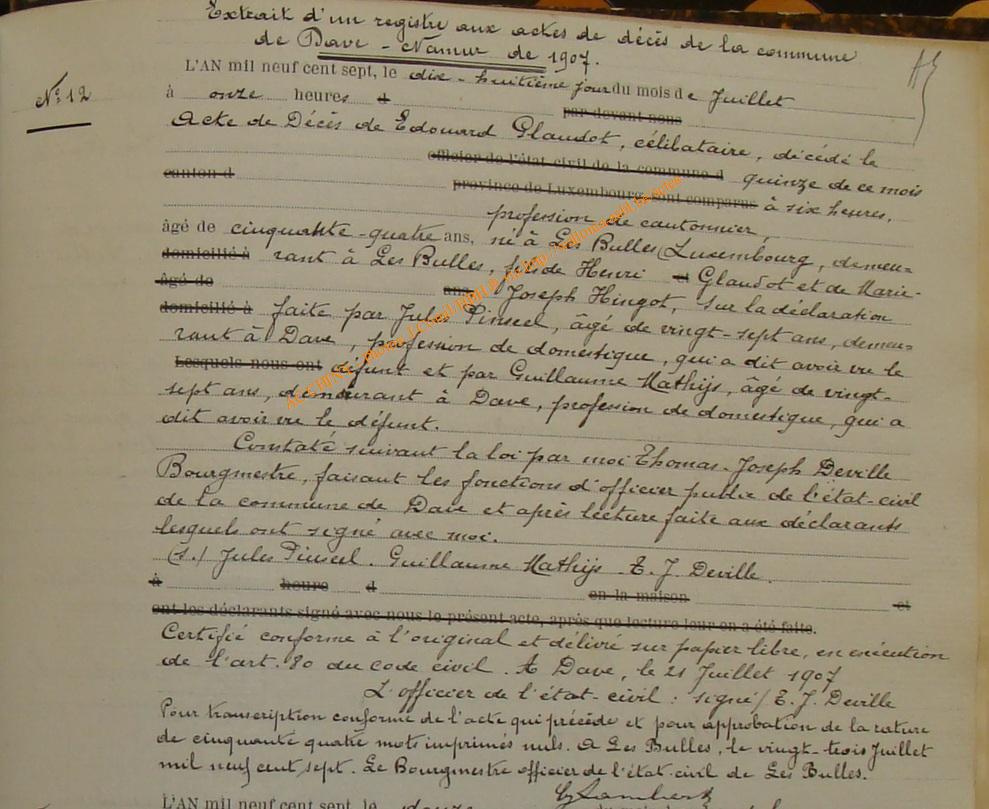 Extrait d'un registre aux actes de décès de la commune
de Dave - Namur de 1907.
N° 12
L'AN mil neuf cent sept, le dix-huitième jour du mois de Juillet
à onze heures d par devant nous
Acte de Décès de Edouard Glaudot, célibataire, décédé le
officier de l'état civil de la commune d quinze de ce mois
canton d province de Luxembourg sont comparus à six heures,
profession de cantonnier,
âgé de cinquante-quatre ans, né à Les Bulles (Luxembourg, demeu=
domicilié à rant à Les Bulles, fils de Henri et Glaudot et de Marie-
âgé de ans, Joseph Hingot, sur la déclaration
domicilié à faite par Jules Pinseel, âgé de vingt-sept ans, demeu=
rant à Dave, profession de domestique, qui a dit avoir vu le
Lesquels nous ont défunt et par Guillaume Mathijs, âgé de vingt-
sept ans, demeurant à Dave, profession de domestique, qui a
dit avoir vu le défunt.
Constaté suivant la loi par moi Thomas-Joseph Deville
Bourgmestre, faisant les fonctions d'officier public de l'état-civil
de la commune de Dave et après lecture faite aux déclarants
lesquels ont signé avec moi.
(s.) Jules Pinseel. Guillaume Mathijs - T. J. Deville.
à heure d en la maison et
ont les déclarants signé avec nous le présent acte, après que lecture leur en a été faite.
Certifié conforme à l'original et délivré sur papier libre, en exécution
de l'art. 80 du code civil. A Dave, le 21 Juillet 1907
L'officier de l'état-civil : signé) T. J. Deville
Pour transcription conforme de l'acte qui précède et pour approbation de la rature
de cinquante quatre mots imprimés nuls. A Les Bulles, le vingt-trois Juillet
mil neuf cent sept. Le Bourgmestre officier de l'état civil de Les Bulles.
Lambert
L'AN mil neuf cent sept, le douze